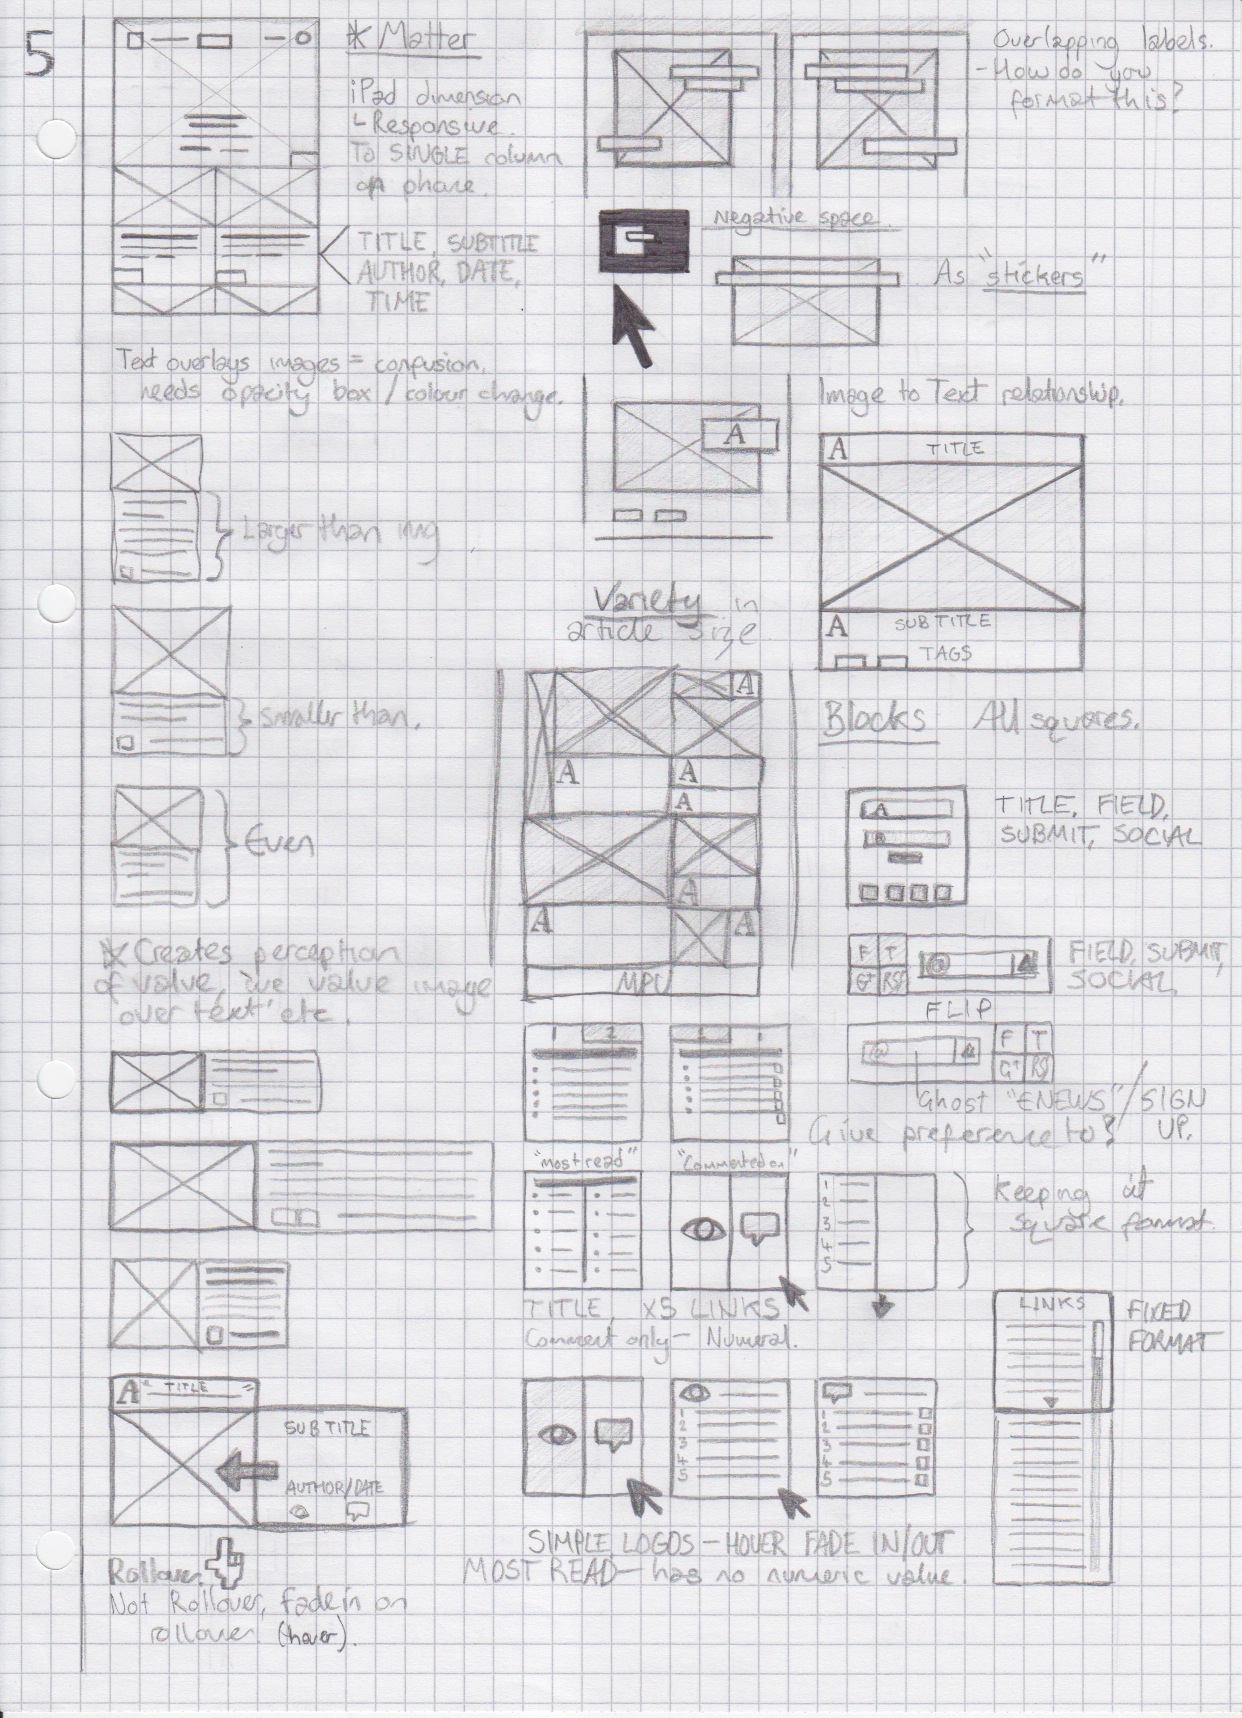 5
* Matter
iPad dimension
Responsive.
To SINGLE column
on phone.
TITLE, SUBTITLE
AUTHOR, DATE,
TIME
Text overlays images = confusion,
needs opacity box / colour change.
Larger than img
Smaller than.
Even
* Creates perception
of value, 'we value image
over text' etc.
A TITLE
SUBTITLE
AUTHOR/DATE
Rollover.
Not Rollover, fade in on
rollover. (hover).
Overlapping labels.
- How do you
format this?
Negative space.
As "stickers"
A
Image to Text relationship.
A TITLE
A SUBTITLE
TAGS
Variety in
article size
A
A A
A
A
A A
MPU
Blocks All squares.
A
TITLE, FIELD,
SUBMIT, SOCIAL
F T
G+ RSS
@
FIELD, SUBMIT,
SOCIAL
FLIP
@
F T
G+ RSS
Ghost "ENEWS" / SIGN
UP.
Give preference to?
1 2
"most read" "Commented on"
1
2
3
4
5
Keeping at
square format.
TITLE, X5 LINKS
Comment only - Numeral.
LINKS
FIXED
FORMAT
1
2
3
4
5
1
2
3
4
5
SIMPLE LOGOS - HOVER FADE IN/OUT
MOST READ - has no numeric value.